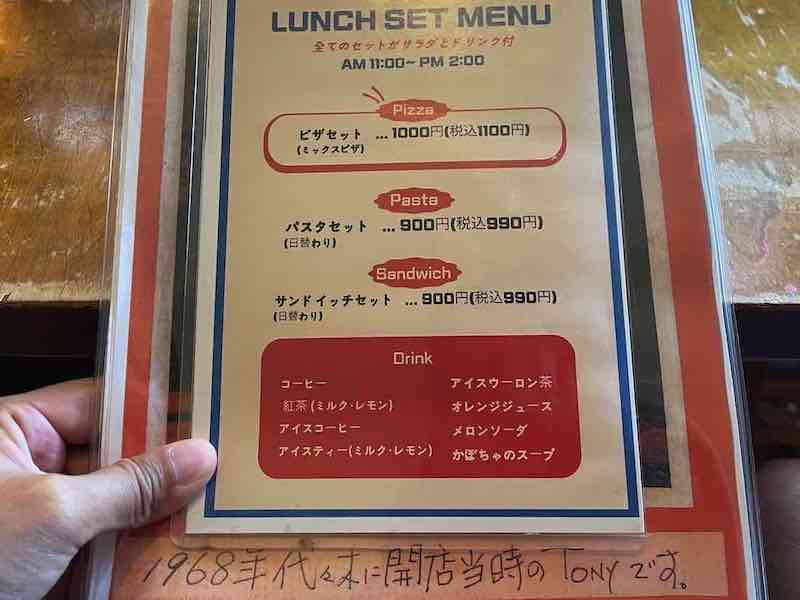 LUNCH SET MENU
全てのセットがサラダとドリンク付
AM 11:00~ PM 2:00
Pizza
ピザセット ... 1000円(税込1100円)
(ミックスピザ)
Pasta
パスタセット ... 900円(税込990円)
(日替わり)
Sandwich
サンドイッチセット ... 900円(税込990円)
(日替わり)
Drink
コーヒー
紅茶 (ミルク・レモン)
アイスコーヒー
アイスティー(ミルク・レモン)
アイスウーロン茶
オレンジジュース
メロンソーダ
かぼちゃのスープ
1968年代々木に開店当時のTONYです。